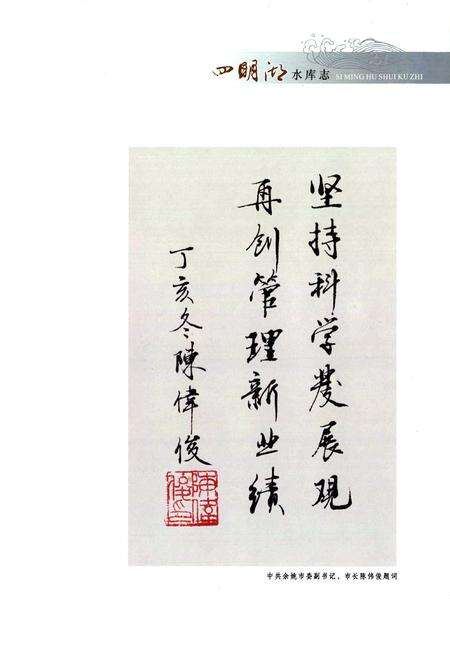 四明湖水库志 SI MING HU SHUI KU ZHI
坚持科学发展观
再创管理新业绩
丁亥冬陳偉俊
中共余姚市委副书记、市长陈伟俊题词